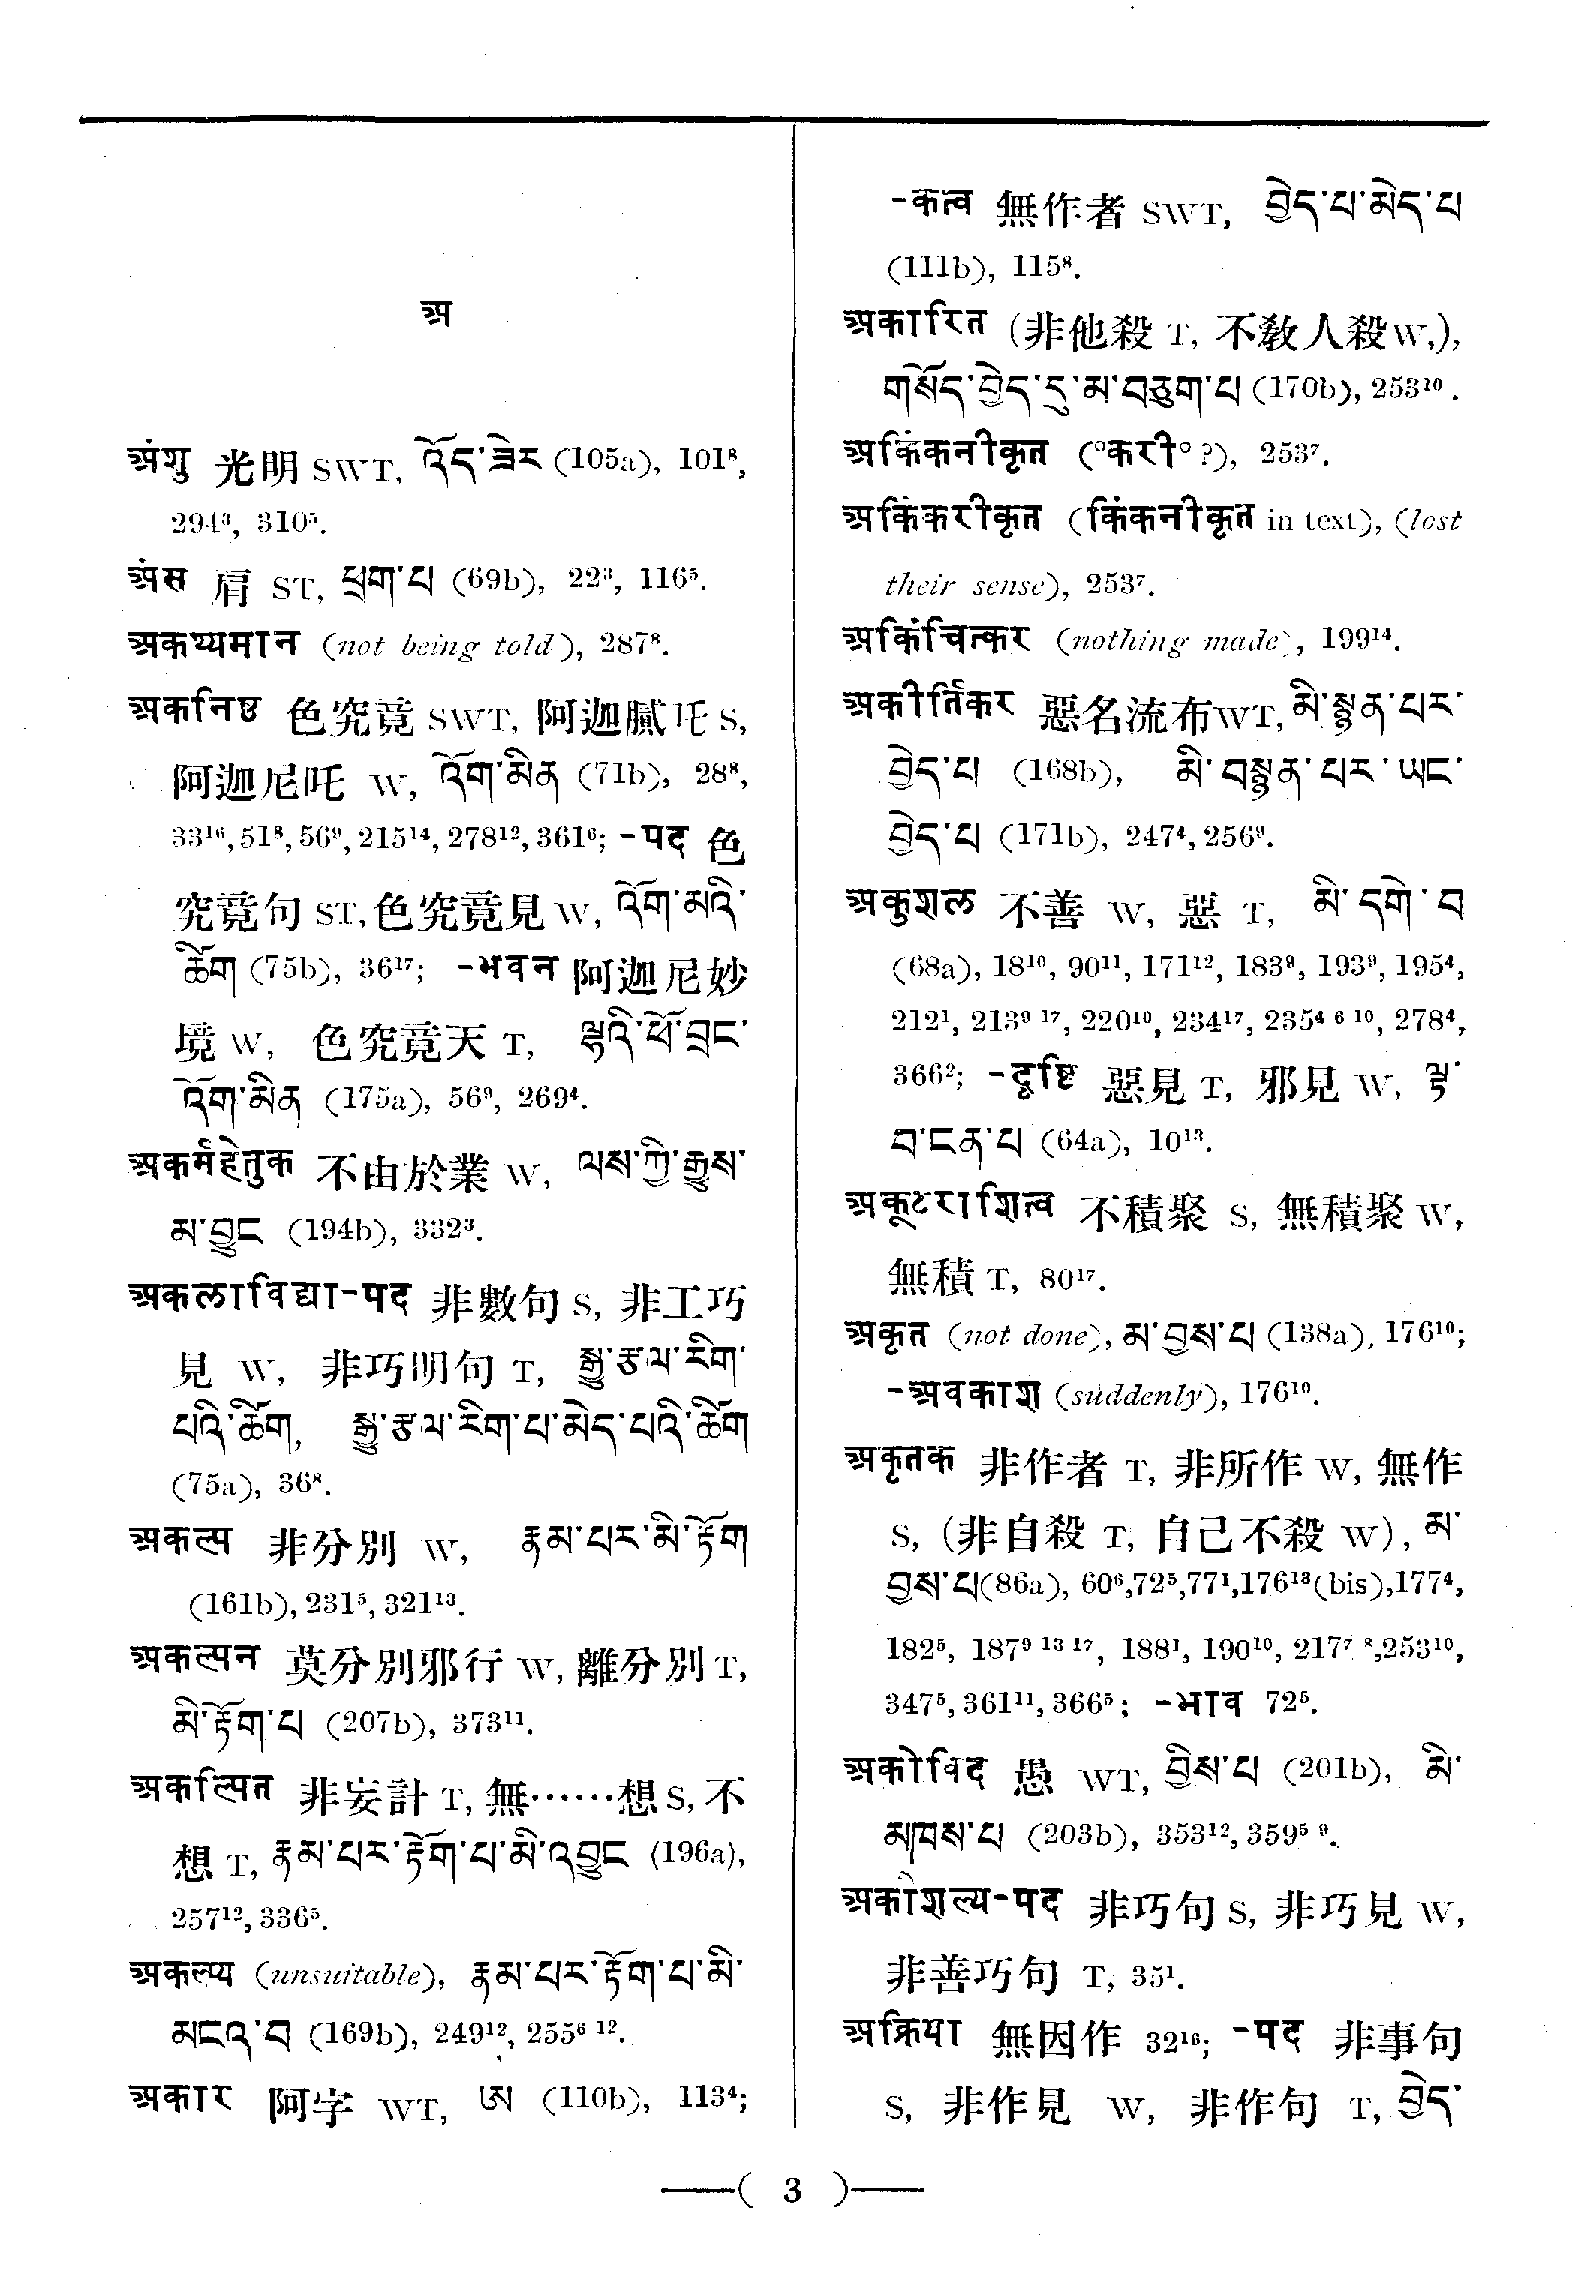 अ
अंशु 光明 SWT, འོད་ཟེར (105a), 101⁸,
294³, 310⁵.
अंस 肩 ST, ཕྲག་པ (69b), 22³, 116⁵.
अकथ्यमान (not being told), 287⁸.
अकनिष्ठ 色究竟 SWT, 阿迦膩吒 S,
阿迦尼吒 W, འོག་མིན (71b), 28⁸,
33¹⁶, 51⁸, 56⁹, 215¹⁴, 278¹², 361⁶; -पद 色
究竟句 ST, 色究竟見 W, འོག་མའི་
ཚོག (75b), 36¹⁷; -भवन 阿迦尼妙
境 W, 色究竟天 T, ལྷའི་ཕོ་བྲང་
འོག་མིན (175a), 56⁹, 269⁴.
अकर्महेतुक 不由於業 W, ལས་ཀྱི་རྒྱུས་
མ་བྱུང (194b), 332³.
अकलाविद्या-पद 非數句 S, 非工巧
見 W, 非巧明句 T, སྒྱུ་རྩལ་རིག་
པའི་ཚོག, སྒྱུ་རྩལ་རིག་པ་མེད་པའི་ཚོག
(75a), 36⁸.
अकल्प 非分別 W, རྣམ་པར་མི་རྟོག
(161b), 231⁵, 321¹³.
अकल्पन 莫分別邪行 W, 離分別 T,
མི་རྟོག་པ (207b), 373¹¹.
अकल्पित 非妄計 T, 無……想 S, 不
想 T, རྣམ་པར་རྟོག་པ་མི་འབྱུང (196a),
257¹², 336⁵.
अकल्प्य (unsuitable), རྣམ་པར་རྟོག་པ་མི་
མངའ་བ (169b), 249¹², 255⁶ ¹².
अकार 阿字 WT, ཨ (110b), 113⁴;
-कत्व 無作者 SWT, བྱེད་པ་མེད་པ
(111b), 115⁸.
अकारित (非他殺 T, 不敎人殺 W,),
གསོད་བྱེད་དུ་མ་བཅུག་པ (170b), 253¹⁰.
अकिंकनीकृत (°करी° ?), 253⁷.
अकिंकरीकृत (किंकनीकृत in text), (lost
their sense), 253⁷.
अकिंचित्कर (nothing made), 199¹⁴.
अकीर्तिकर 惡名流布 WT, མི་སྙན་པར་
བྱེད་པ (168b), མི་བསྙན་པར་ཡང་
བྱེད་པ (171b), 247⁴, 256⁹.
अकुशल 不善 W, 惡 T, མི་དགེ་བ
(68a), 18¹⁰, 90¹¹, 171¹², 183⁹, 193⁹, 195⁴,
212¹, 213⁹ ¹⁷, 220¹⁰, 234¹⁷, 235⁴ ⁶ ¹⁰, 278⁴,
366²; -दृष्टि 惡見 T, 邪見 W, ལྟ་
བ་ངན་པ (64a), 10¹³.
अकूटराशित्व 不積聚 S, 無積聚 W,
無積 T, 80¹⁷.
अकृत (not done), མ་བྱས་པ (138a), 176¹⁰;
-अवकाश (suddenly), 176¹⁰.
अकृतक 非作者 T, 非所作 W, 無作
S, (非自殺 T, 自己不殺 W), མ་
བྱས་པ(86a), 60⁶,72⁵,77¹,176¹³(bis),177⁴,
182⁵, 187⁹ ¹³ ¹⁷, 188¹, 190¹⁰, 217⁷ ⁸,253¹⁰,
347⁵, 361¹¹, 366⁵; -भाव 72⁵.
अकोविद 愚 WT, བྱིས་པ (201b), མི་
མཁས་པ (203b), 353¹², 359⁵ ⁹.
अकौशल्य-पद 非巧句 S, 非巧見 W,
非善巧句 T, 35¹.
अक्रिया 無因作 32¹⁶; -पद 非事句
S, 非作見 W, 非作句 T, བྱེད་
—( 3 )—